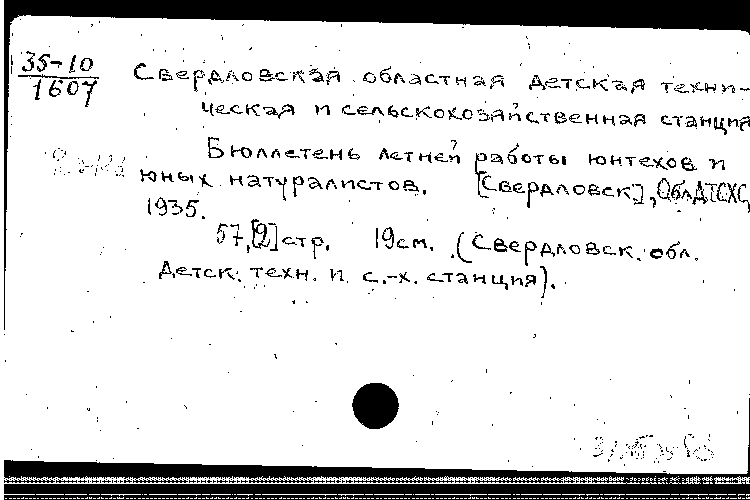 35-10
1607
Свердловская областная детская техни-
ческая и сельскохозяйственная станция
Бюллетень летней работы юнтехов и
юных натуралистов. [Свердловск], ОблДТСХС,
1935.
57,[2]стр. 19см. (Свердловск. обл.
Детск. техн. и с.-х. станция).